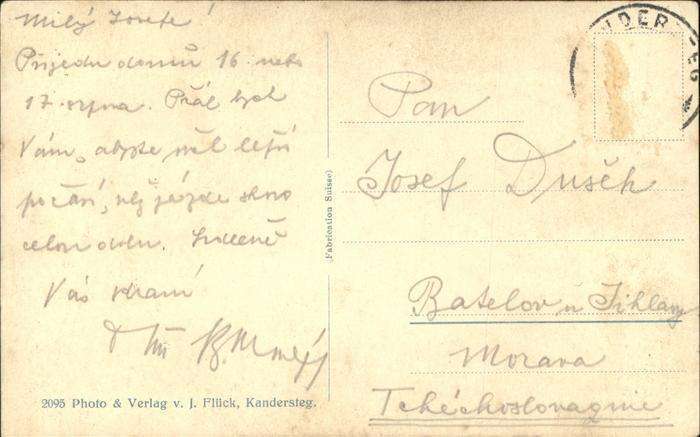 Milý Josefe!
Přijedu domů 16. nebo
17. srpna. Přál bych
Vám, abyste měl lepší
počasí, než je zde skoro
celou dobu. Srdečně
Vás zdraví
(Fabrication Suisse)
NDERSTEG
Pan
Josef Dušek
Batelov u Jihlavy
Morava
Tchéchoslovaquie
2095 Photo & Verlag v. J. Flück, Kandersteg.